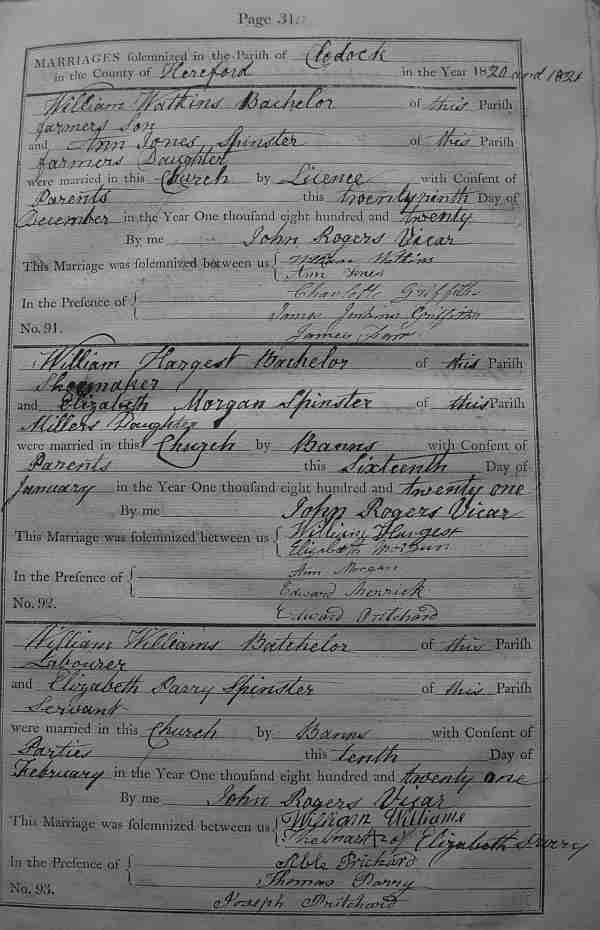 Page 31
MARRIAGES solemnized in the Parish of Clodock
in the County of Hereford in the Year 1820 and 1821
William Watkins Bachelor of this Parish
farmers Son
and Ann Jones Spinster of this Parish
farmers Daughter
were married in this Church by Licence with Consent of
Parents this twenty ninth Day of
December in the Year One thousand eight hundred and twenty
By me John Rogers Vicar
This Marriage was solemnized between us { William Watkins
Ann Jones
Charlotte Griffiths
In the Presence of { James Jenkins Griffiths
No. 91. James
William Hargest Bachelor of this Parish
Shoemaker
and Elizabeth Morgan Spinster of this Parish
Millers Daughter
were married in this Church by Banns with Consent of
Parents this Sixteenth Day of
January in the Year One thousand eight hundred and twenty one
By me John Rogers Vicar
This Marriage was solemnized between us { William Hargest
Elizabeth Morgan
Ann Morgan
In the Presence of { Edward
No. 92. Edward Pritchard
William Williams Batchelor of this Parish
Labourer
and Elizabeth Parry Spinster of this Parish
Servant
were married in this Church by Banns with Consent of
Parties this tenth Day of
February in the Year One thousand eight hundred and twenty one
By me John Rogers Vicar
This Marriage was solemnized between us { William Williams
The mark x of Elizabeth Parry
In the Presence of { Able Prichard
Thomas Parry
No. 93. Joseph Pritchard